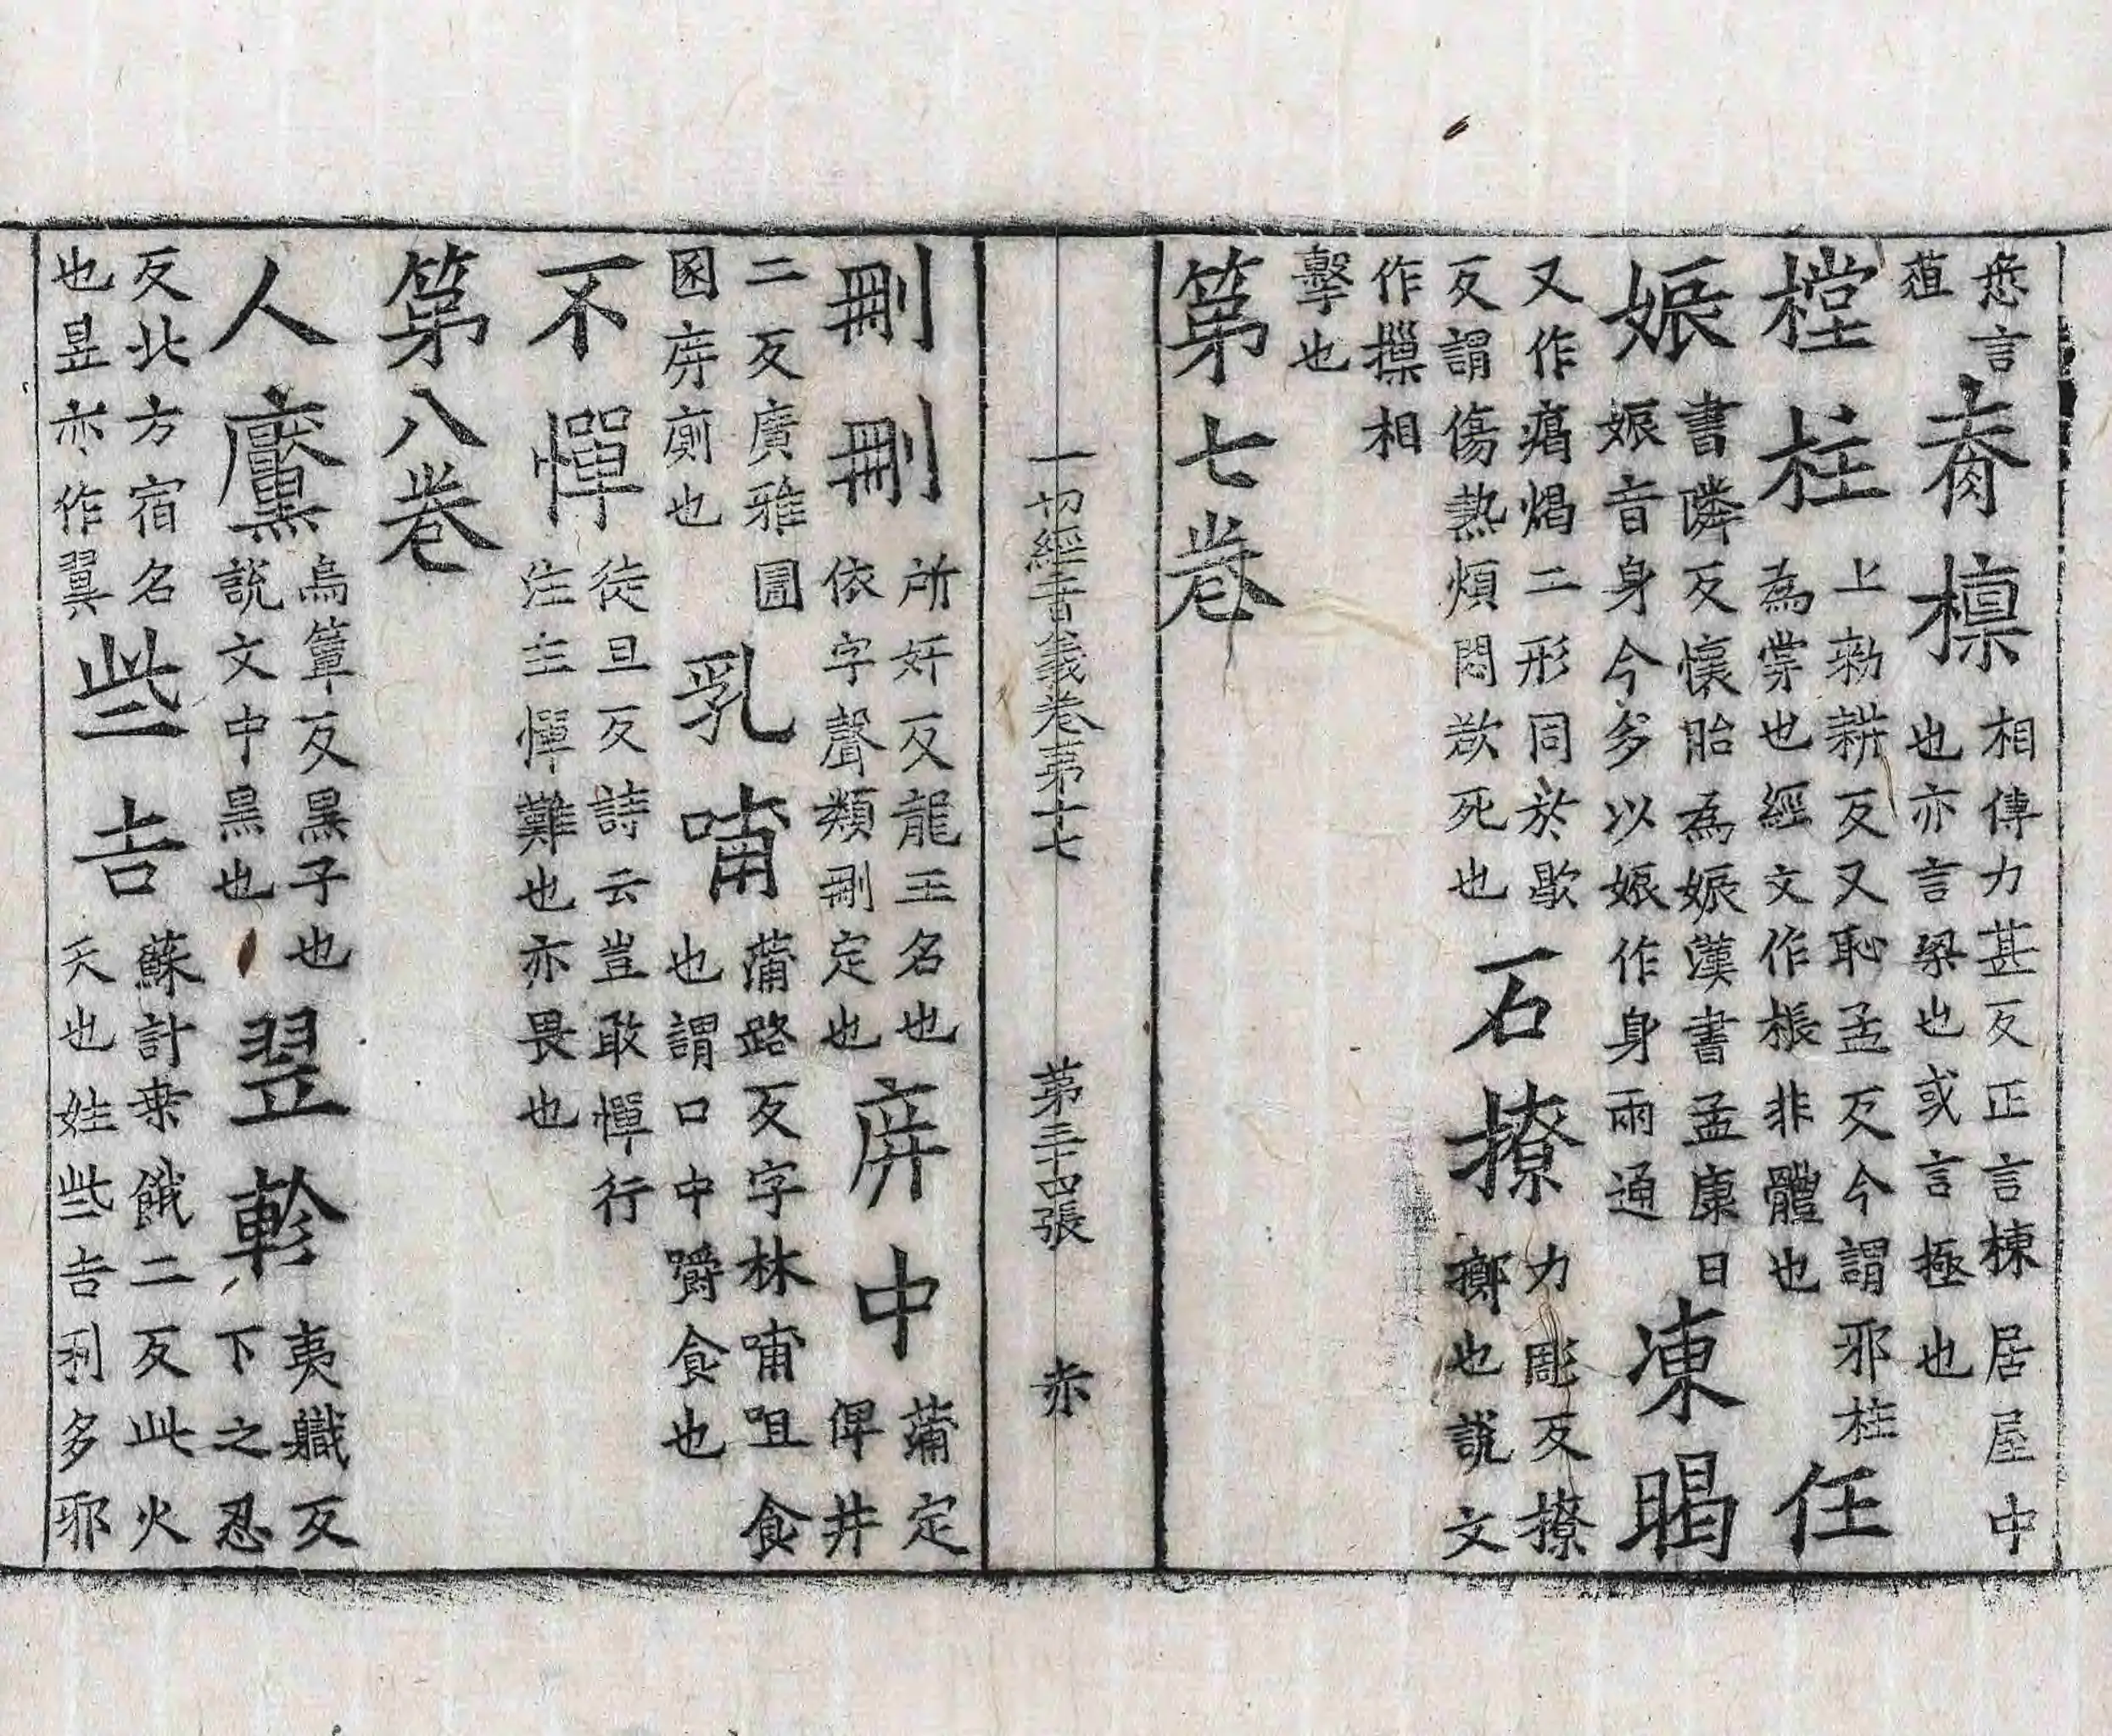 𣧑言脊檁相傳力甚反正言棟居屋中
葅也亦言梁也或言極也
樘柱上勑耕反又恥孟反今謂邪柱為棠也經文作棖非體也任
娠書隣反懷胎為娠漢書孟康曰娠音身今多以娠作身兩通涷暍
又作㾼焬二形同於歇反謂傷熱煩悶欲死也石撩力彫反撩擲也說文
作摷相
擊也
第七卷
一切經音義卷第十七 第三十四張 赤
刪刪所奸反龍王名也依字聲類刪定也庰中蒲定俾井
二反廣雅圊圂庰廁也乳哺蒲路反字林哺咀食也謂口中嚼食也
不憚徒旦反詩云豈敢憚行注主憚難也亦畏也
第八卷
人黶烏簟反黑子也說文中黑也翌軫夷職反下之忍
反北方宿名也昱亦作翼些吉蘇計桒餓二反此火天也姓些吉利多耶